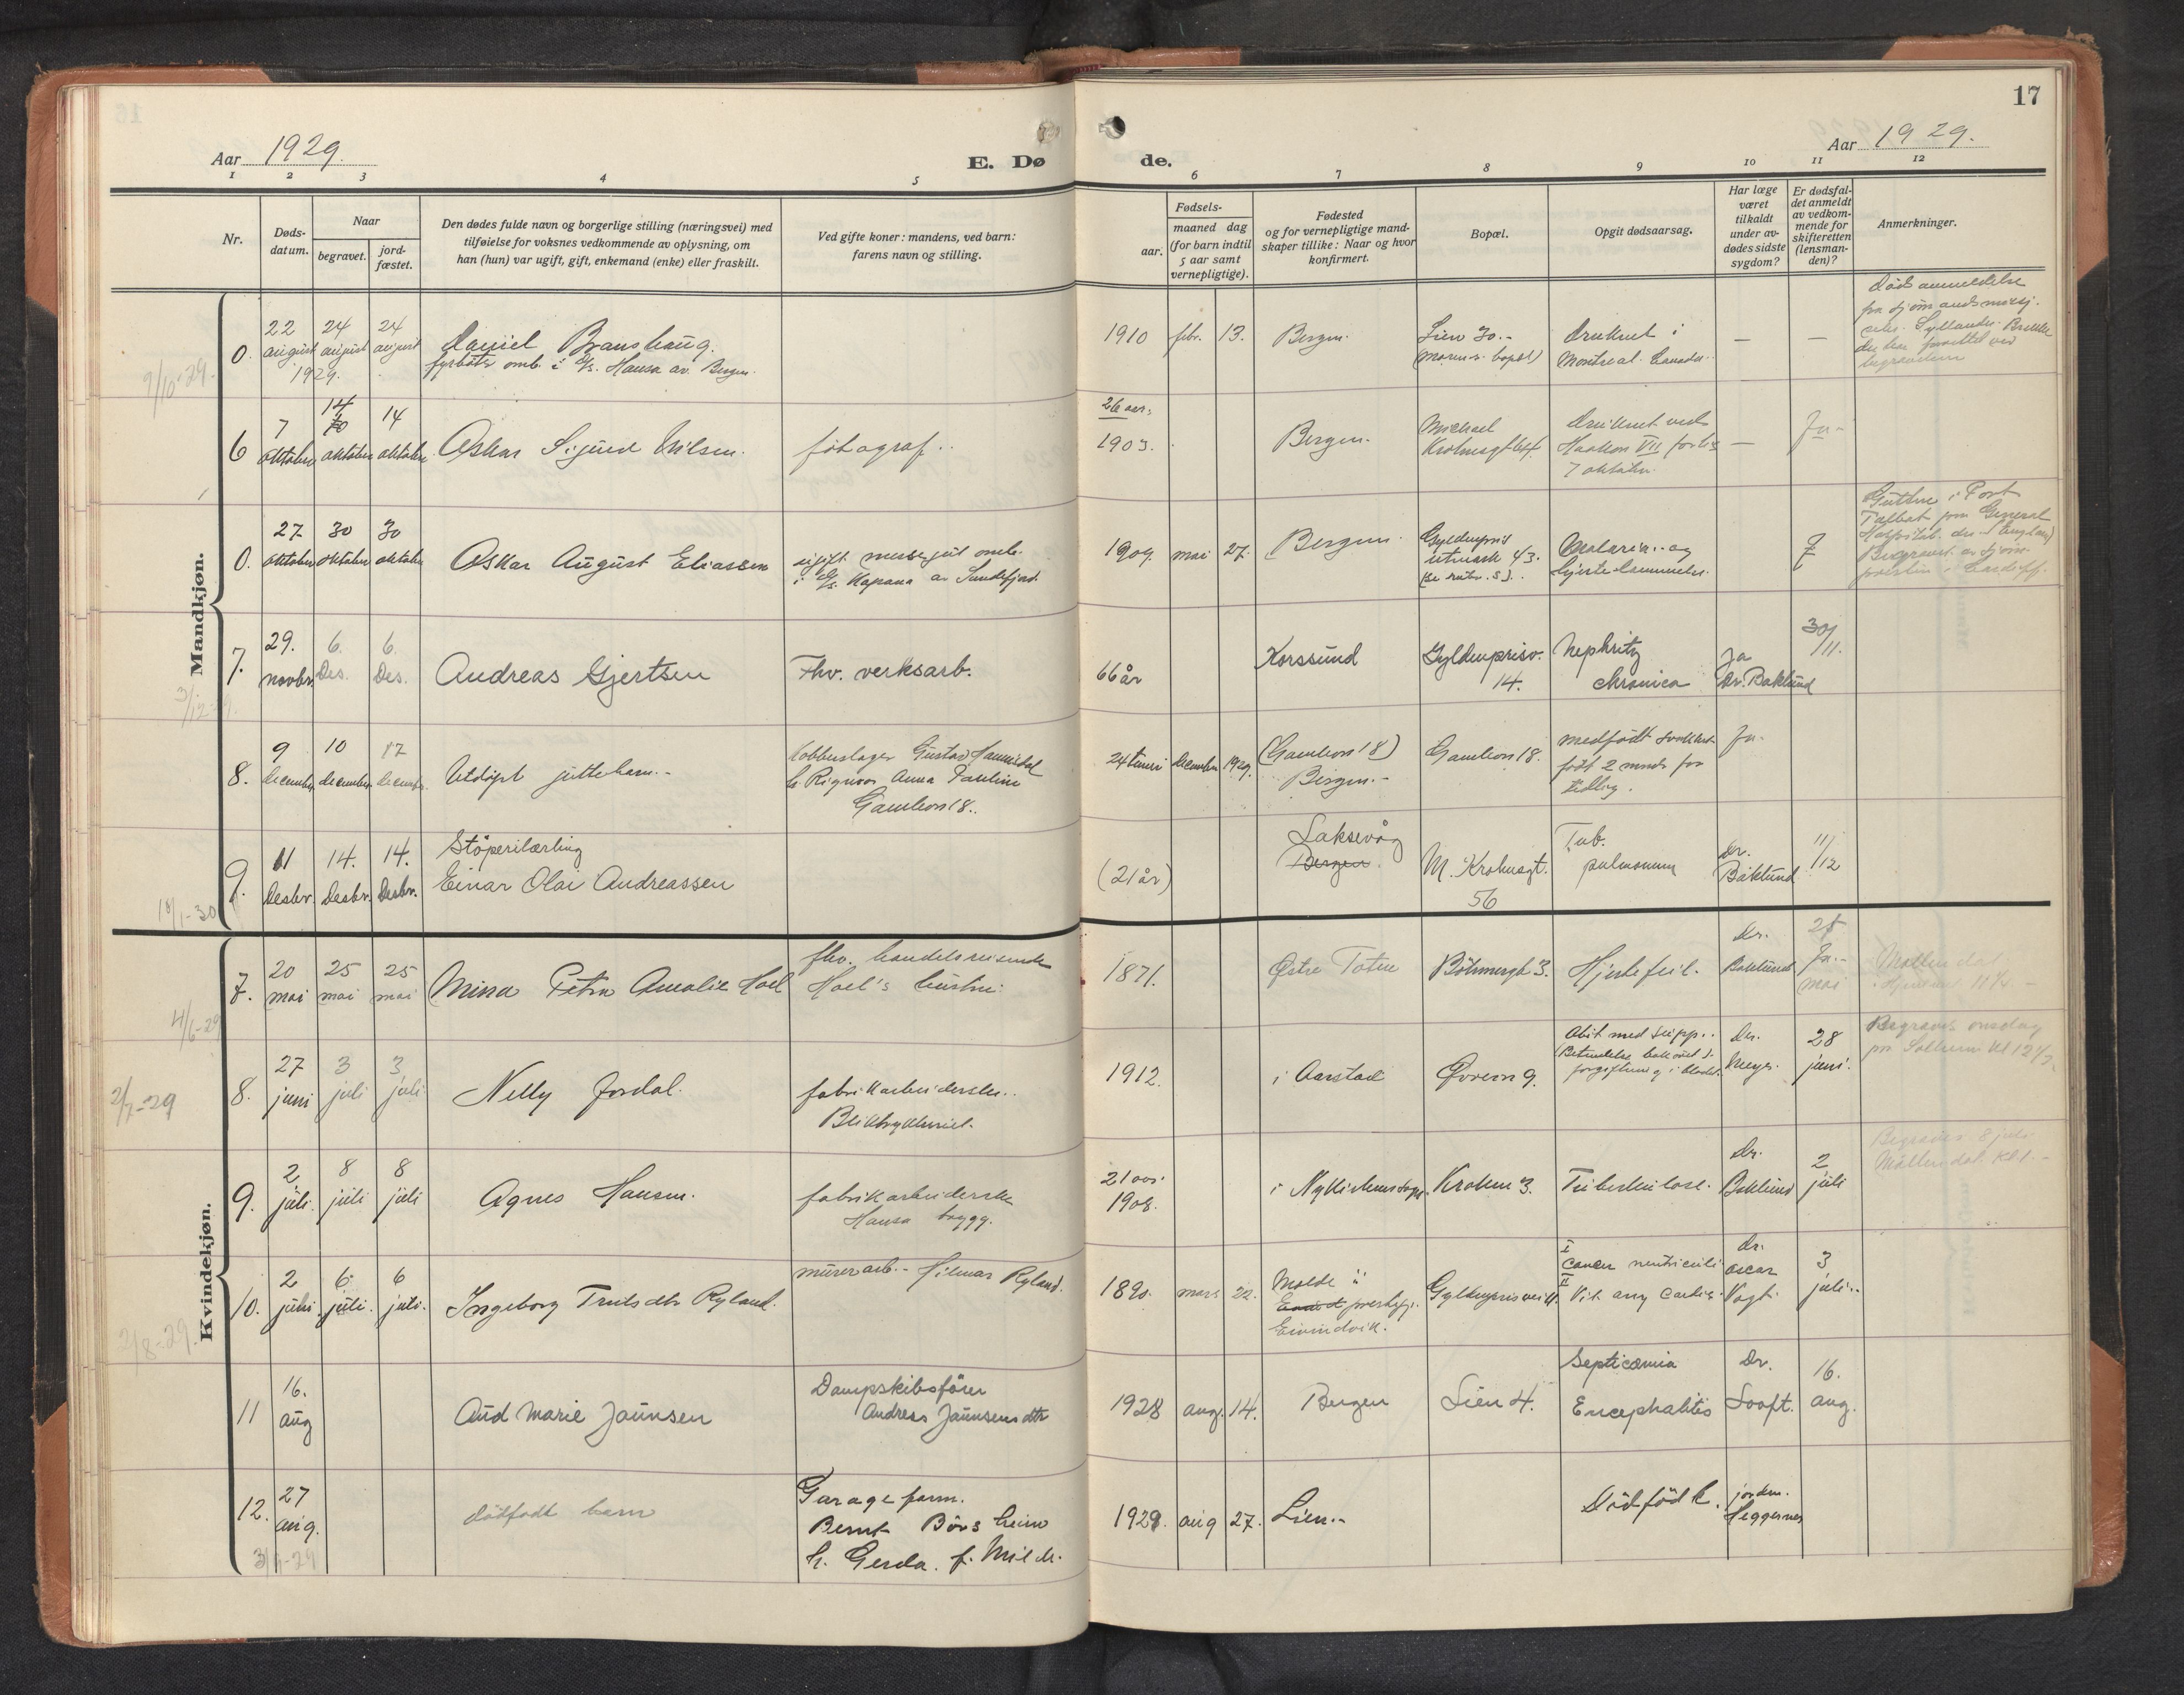 17
Aar 1929.
E. Dø
de.
Aar 1929.
1 2 3 4 5 6 7 8 9 10 11 12
Nr.
Døds-
datum.
Naar
begravet.
jord-
fæstet.
Den dødes fulde navn og borgerlige stilling (næringsvei) med
tilføielse for voksnes vedkommende av oplysning, om
han (hun) var ugift, gift, enkemand (enke) eller fraskilt.
Ved gifte koner: mandens, ved barn:
farens navn og stilling.
Fødsels-
aar.
maaned dag
(for barn indtil
5 aar samt
vernepligtige).
Fødested
og for vernepligtige mand-
skaper tillike: Naar og hvor
konfirmert.
Bopæl.
Opgit dødsaarsag.
Har læge
været
tilkaldt
under av-
dødes sidste
sygdom?
Er dødsfal-
det anmeldt
av vedkom-
mende for
skifteretten
(lensman-
den)?
Anmerkninger.
Mandkjøn.
9/10-29.
0.
22 august 1929.
24 august
24 august
Daniel
fyrbøter omb. i Hansa av Bergen.
1910 febr. 13.
Bergen.
Lien 30.-
(morens bopæl)
Druknet i
Montreal. Canada.
—
—
6
7 oktober
14 oktober
14 oktober
Oskar Sigurd Nilsen.
fotograf.
26 aar.
1903.
Bergen.
Michael
Krohnsgt 64.
Druknet ved
Haakon VII forlis
7 oktober
—
Ja-
0.
27 oktober
30 oktober
30 oktober
Oskar August Eliassen
ugift messegut omb.
i Kapana av Sandefjord.
1909 mai 27.
Bergen.
Gyldenpris
utmark 43.
(se rubr. 5).
Malaria og
hjerte
7.
29. novbr.
6. Des.
6. Des.
Andreas Gjertsen
Fhv. verksarb.
66 år
Korssund
Gyldenprisv.
14.
Nephritis
chronica
Ja
Dr. Baklund
30/11.
8.
9 december
10 december
17 december
Udöpt guttebarn.-
Kobberslager Gustav
h. Anna Pauline
Gamleon 18.
24 timer december 1929.
(Gamleon 18)
Bergen.-
Gamleon 18.
medfödt svakhet
födt 2 mndr for
tidlig.
Ja-
18/1-30
9.
11 Desbr.
14. Desbr.
14. Desbr.
Stöperilærling
Einar Olai Andreassen
(21 år)
Laksevåg
Bergen.
M. Krohnsgt.
56
Tub.
pulmonum
Dr.
Baklund
11/12
Kvindekjøn.
4/6-29
7.
20 mai
25 mai
25 mai
Minna Petra Amalie Hoel
fhv. handelsreisende
Hoel's hustru.
1871.
Østre Toten
Böhmergt 3.
Hjertefeil.
Dr.
Baklund
mai
2/7-29
8.
27 juni
3 juli
3 juli
Nelly Jordal.
fabrikarbeiderske.
1912.
i Aarstad
Øvreon 9.
Dr.
Meyer.
28
juni.
Begraves onsdag
9.
2 juli
8 juli
8 juli
Agnes Hansen.
fabrikarbeiderske
Hansa brygg.
21 aar.
1908.
i Nykirkensogn.
Krohnen 3.
Tuberkulose.
Dr.
Baklund
2
juli
Begraves 8 juli
Möllendal. kl 1.-
2/8-29.
10.
2 juli
6 juli.
6 juli.
Ingeborg Trulsdtr Ryland.
murerarb.- Hilmar Ryland.
1890. mars 22.
Molde i
prestegj.
Eivindvik.
Gyldenprisvei 11.
I
Cancer ventriculi
II
Dr.
Oscar
Vogt.
3
juli.
11
16. aug
Aud Marie Jaunsen
Dampskibsförer
Andreas Jaunsens dtr
1928 aug. 14.
Bergen
Lien 4.
Septicæmia
Encephalitis
Dr.
Looft.
16.
aug.
12.
27 aug.
dödfödt barn
Garageform.
Bernt Börsheim
h. Gerda. f. Milde.
1929. aug 27.
Lien.-
Dödfödt.
jordm.
Heggernes